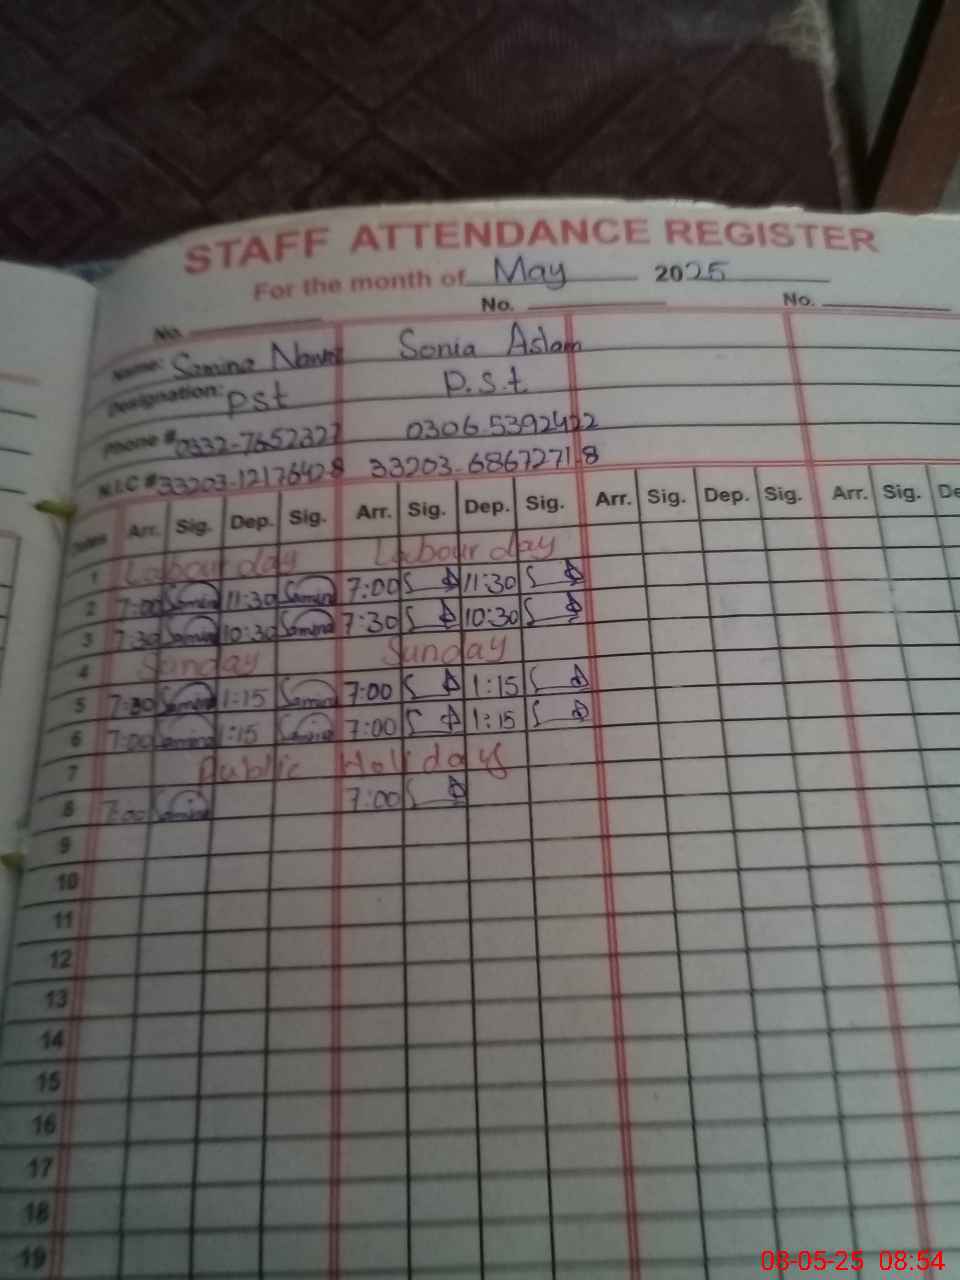 STAFF ATTENDANCE REGISTER
For the month of May 2025
No. No. No.
Name: Samina Sonia Aslam
Designation: PST P.S.t
Phone # 0332-7652327 0306 5392422
N.I.C # 33203-1217642-8 33203-6867271-8
Dates Arr. Sig. Dep. Sig. Arr. Sig. Dep. Sig. Arr. Sig. Dep. Sig. Arr. Sig. De
1 Labour day Labour day
2 7:00 Samina 11:30 Samina 7:00 11:30
3 7:30 Samina 10:30 Samina 7:30 10:30
4 Sunday Sunday
5 7:00 Samina 1:15 Samina 7:00 1:15
6 7:00 Samina 1:15 Samina 7:00 1:15
7 Public Holidays
8 7:00 Samina 7:00
9
10
11
12
13
14
15
16
17
18
19
08-05-25 08:54